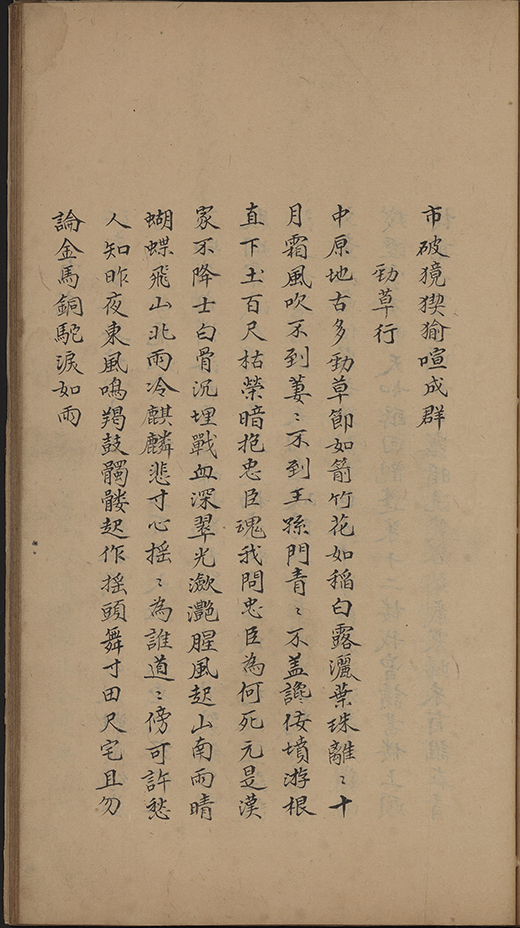 市破獍猰㺄喧成群
勁草行
中原地古多勁草節如箭竹花如稻白露灑葉珠離〻十
月霜風吹不到萋〻不到王孫門青〻不盖讒佞墳游根
直下土百尺枯榮暗抱忠臣魂我問忠臣為何死元是漢
家不降士白骨沉埋戰血深翠光瀲灔腥風起山南雨晴
蝴蝶飛山北雨冷麒麟悲寸心揺〻為誰道〻傍可許愁
人知昨夜東風鳴羯鼓髑髏起作揺頭舞寸田尺宅且勿
論金馬銅駝淚如雨